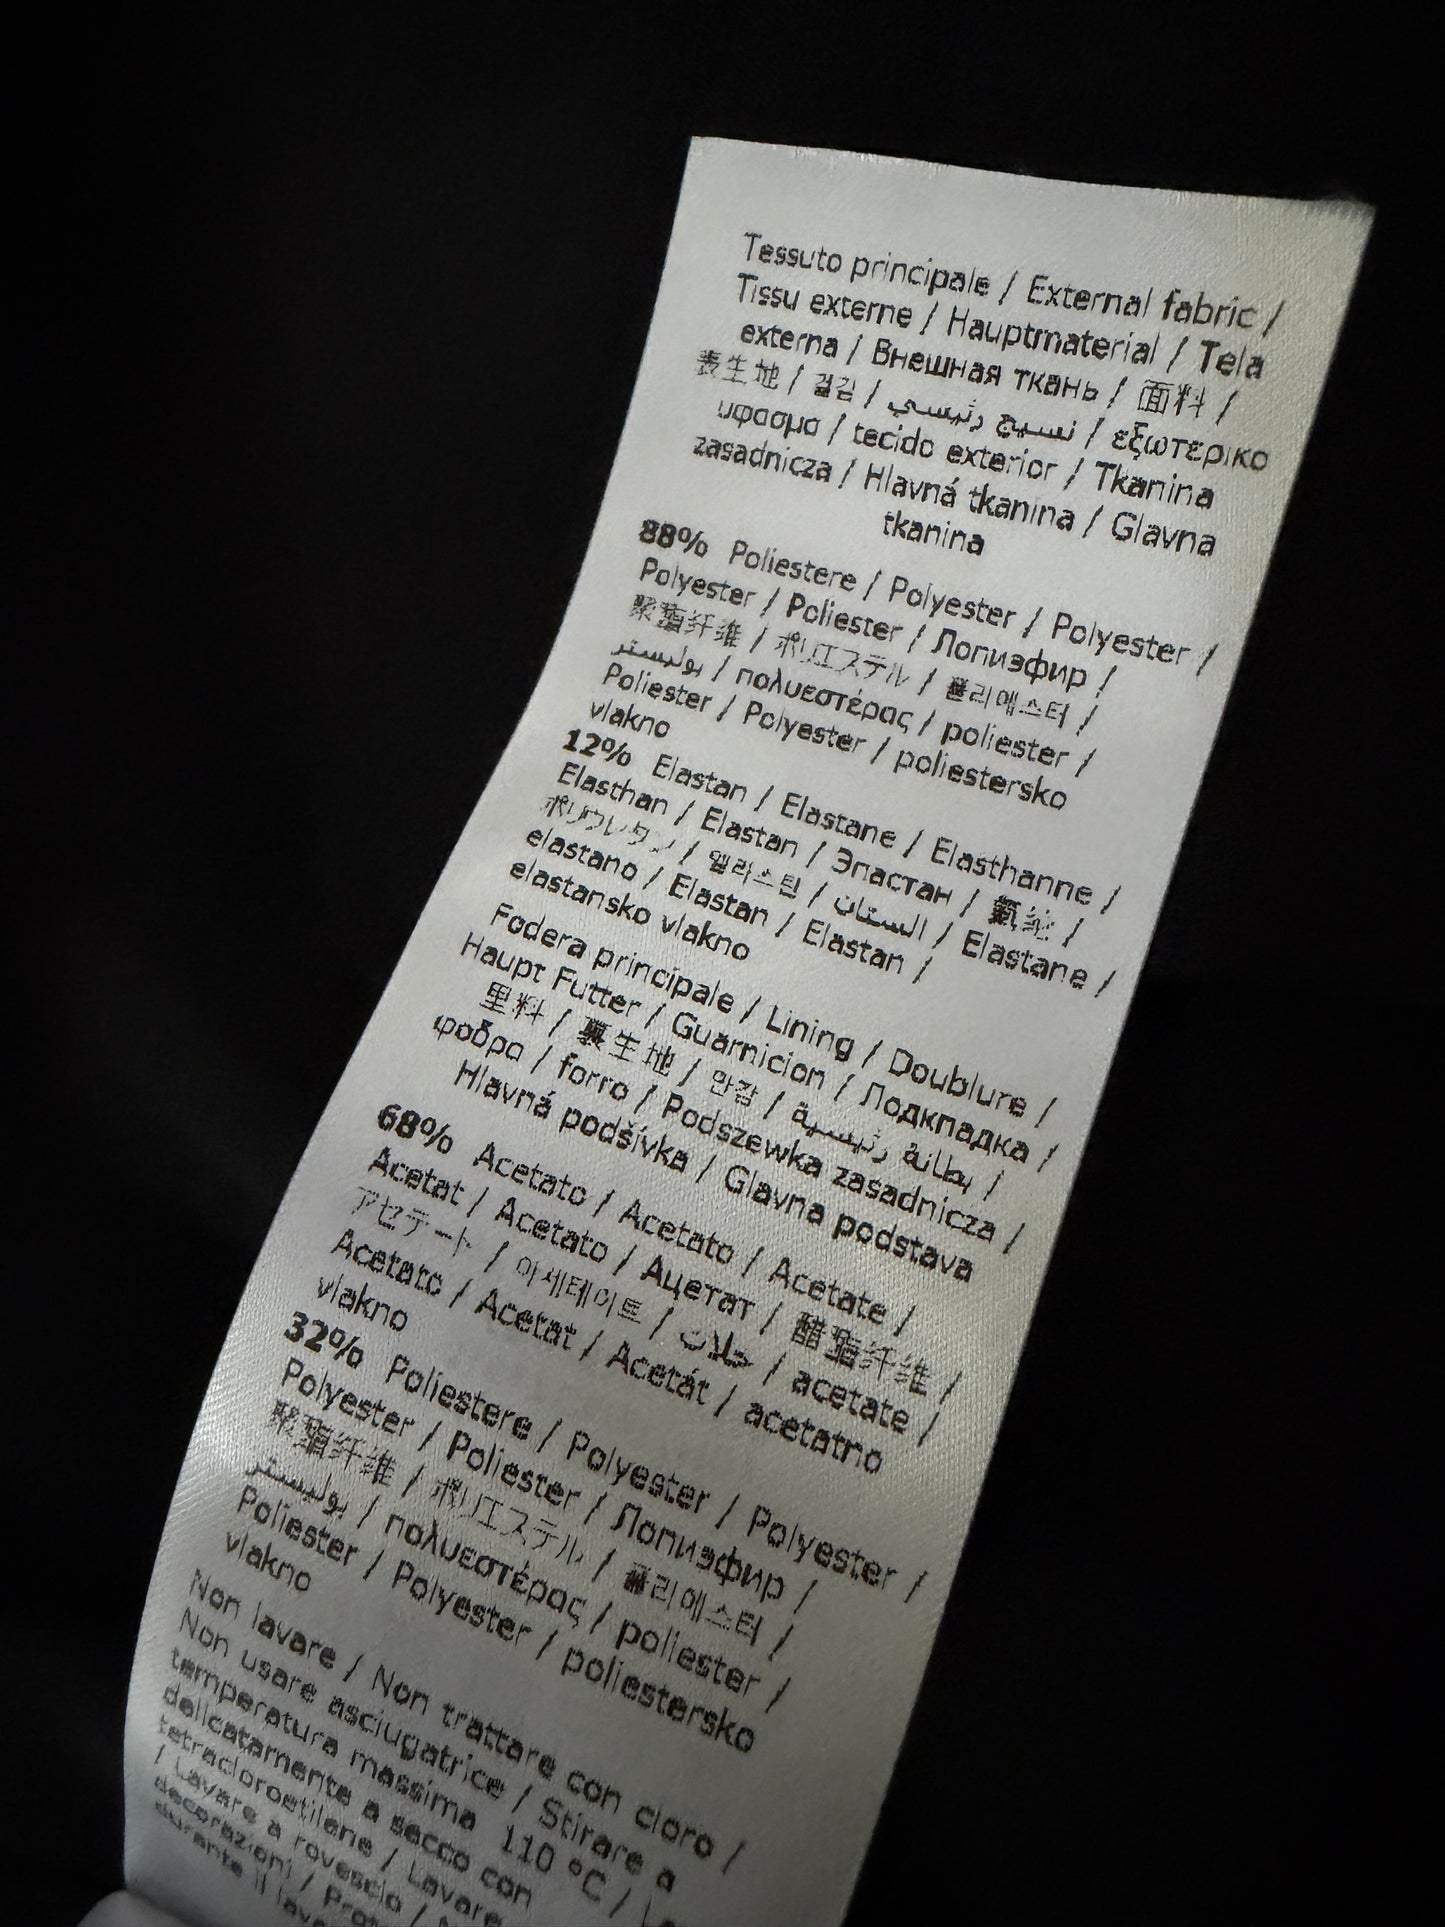 Tessuto principale / External fabric /
Tissu externe / Hauptmaterial / Tela
externa / Внешная ткань / 面料 /
表生地 / 겉감 / نسيج رئيسي / εξωτερικο
υφασμα / tecido exterior / Tkanina
zasadnicza / Hlavná tkanina / Glavna
tkanina
88% Poliestere / Polyester / Polyester /
Polyester / Poliester / Полиэфир /
聚酯纤维 / ポリエステル / 폴리에스터 /
بوليستر / πολυεστέρας / poliester /
Poliester / Polyester / poliestersko
vlakno
12% Elastan / Elastane / Elasthanne /
Elasthan / Elastan / Эластан / 氨纶 /
ポリウレタン / 엘라스틴 / الستان / Elastane /
elastano / Elastan / Elastan /
elastansko vlakno
Fodera principale / Lining / Doublure /
Haupt Futter / Guarnicion / Подкладка /
里料 / 裏生地 / 안감 / بطانة رئيسية /
φοδρα / forro / Podszewka zasadnicza /
Hlavná podšívka / Glavna podstava
68% Acetato / Acetato / Acetate /
Acetat / Acetato / Ацетат / 醋酯纤维 /
アセテート / 아세테이트 / خلات / acetate /
Acetato / Acetat / Acetát / acetatno
vlakno
32% Poliestere / Polyester / Polyester /
Polyester / Poliester / Полиэфир /
聚酯纤维 / ポリエステル / 폴리에스터 /
بوليستر / πολυεστέρας / poliester /
Poliester / Polyester / poliestersko
vlakno
Non lavare / Non trattare con cloro /
Non usare asciugatrice / Stirare a
temperatura massima 110 °C /
delicatamente a secco con
tetracloroetilene / Lavare
/ Lavare a rovescio /
decorazioni /
durante il